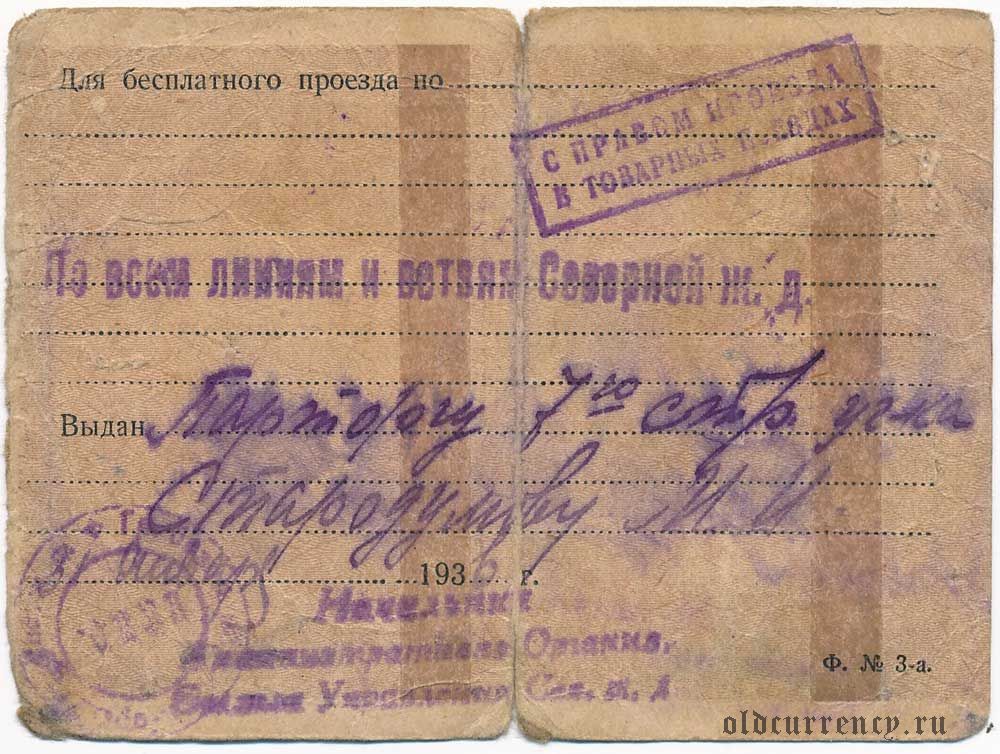 Для бесплатного проезда по
С ПРАВОМ ПРОЕЗДА
В ТОВАРНЫХ ПОЕЗДАХ
По всем линиям и ветвям Северной Ж. Д.
Выдан Парторгу 7го стр. уч-ка
Стародумову М. И
31 Января 1936 г.
Начальник
Административно Организ.
Отдела Управления Сев. ж. д
Ф. № 3-а.
oldcurrency.ru